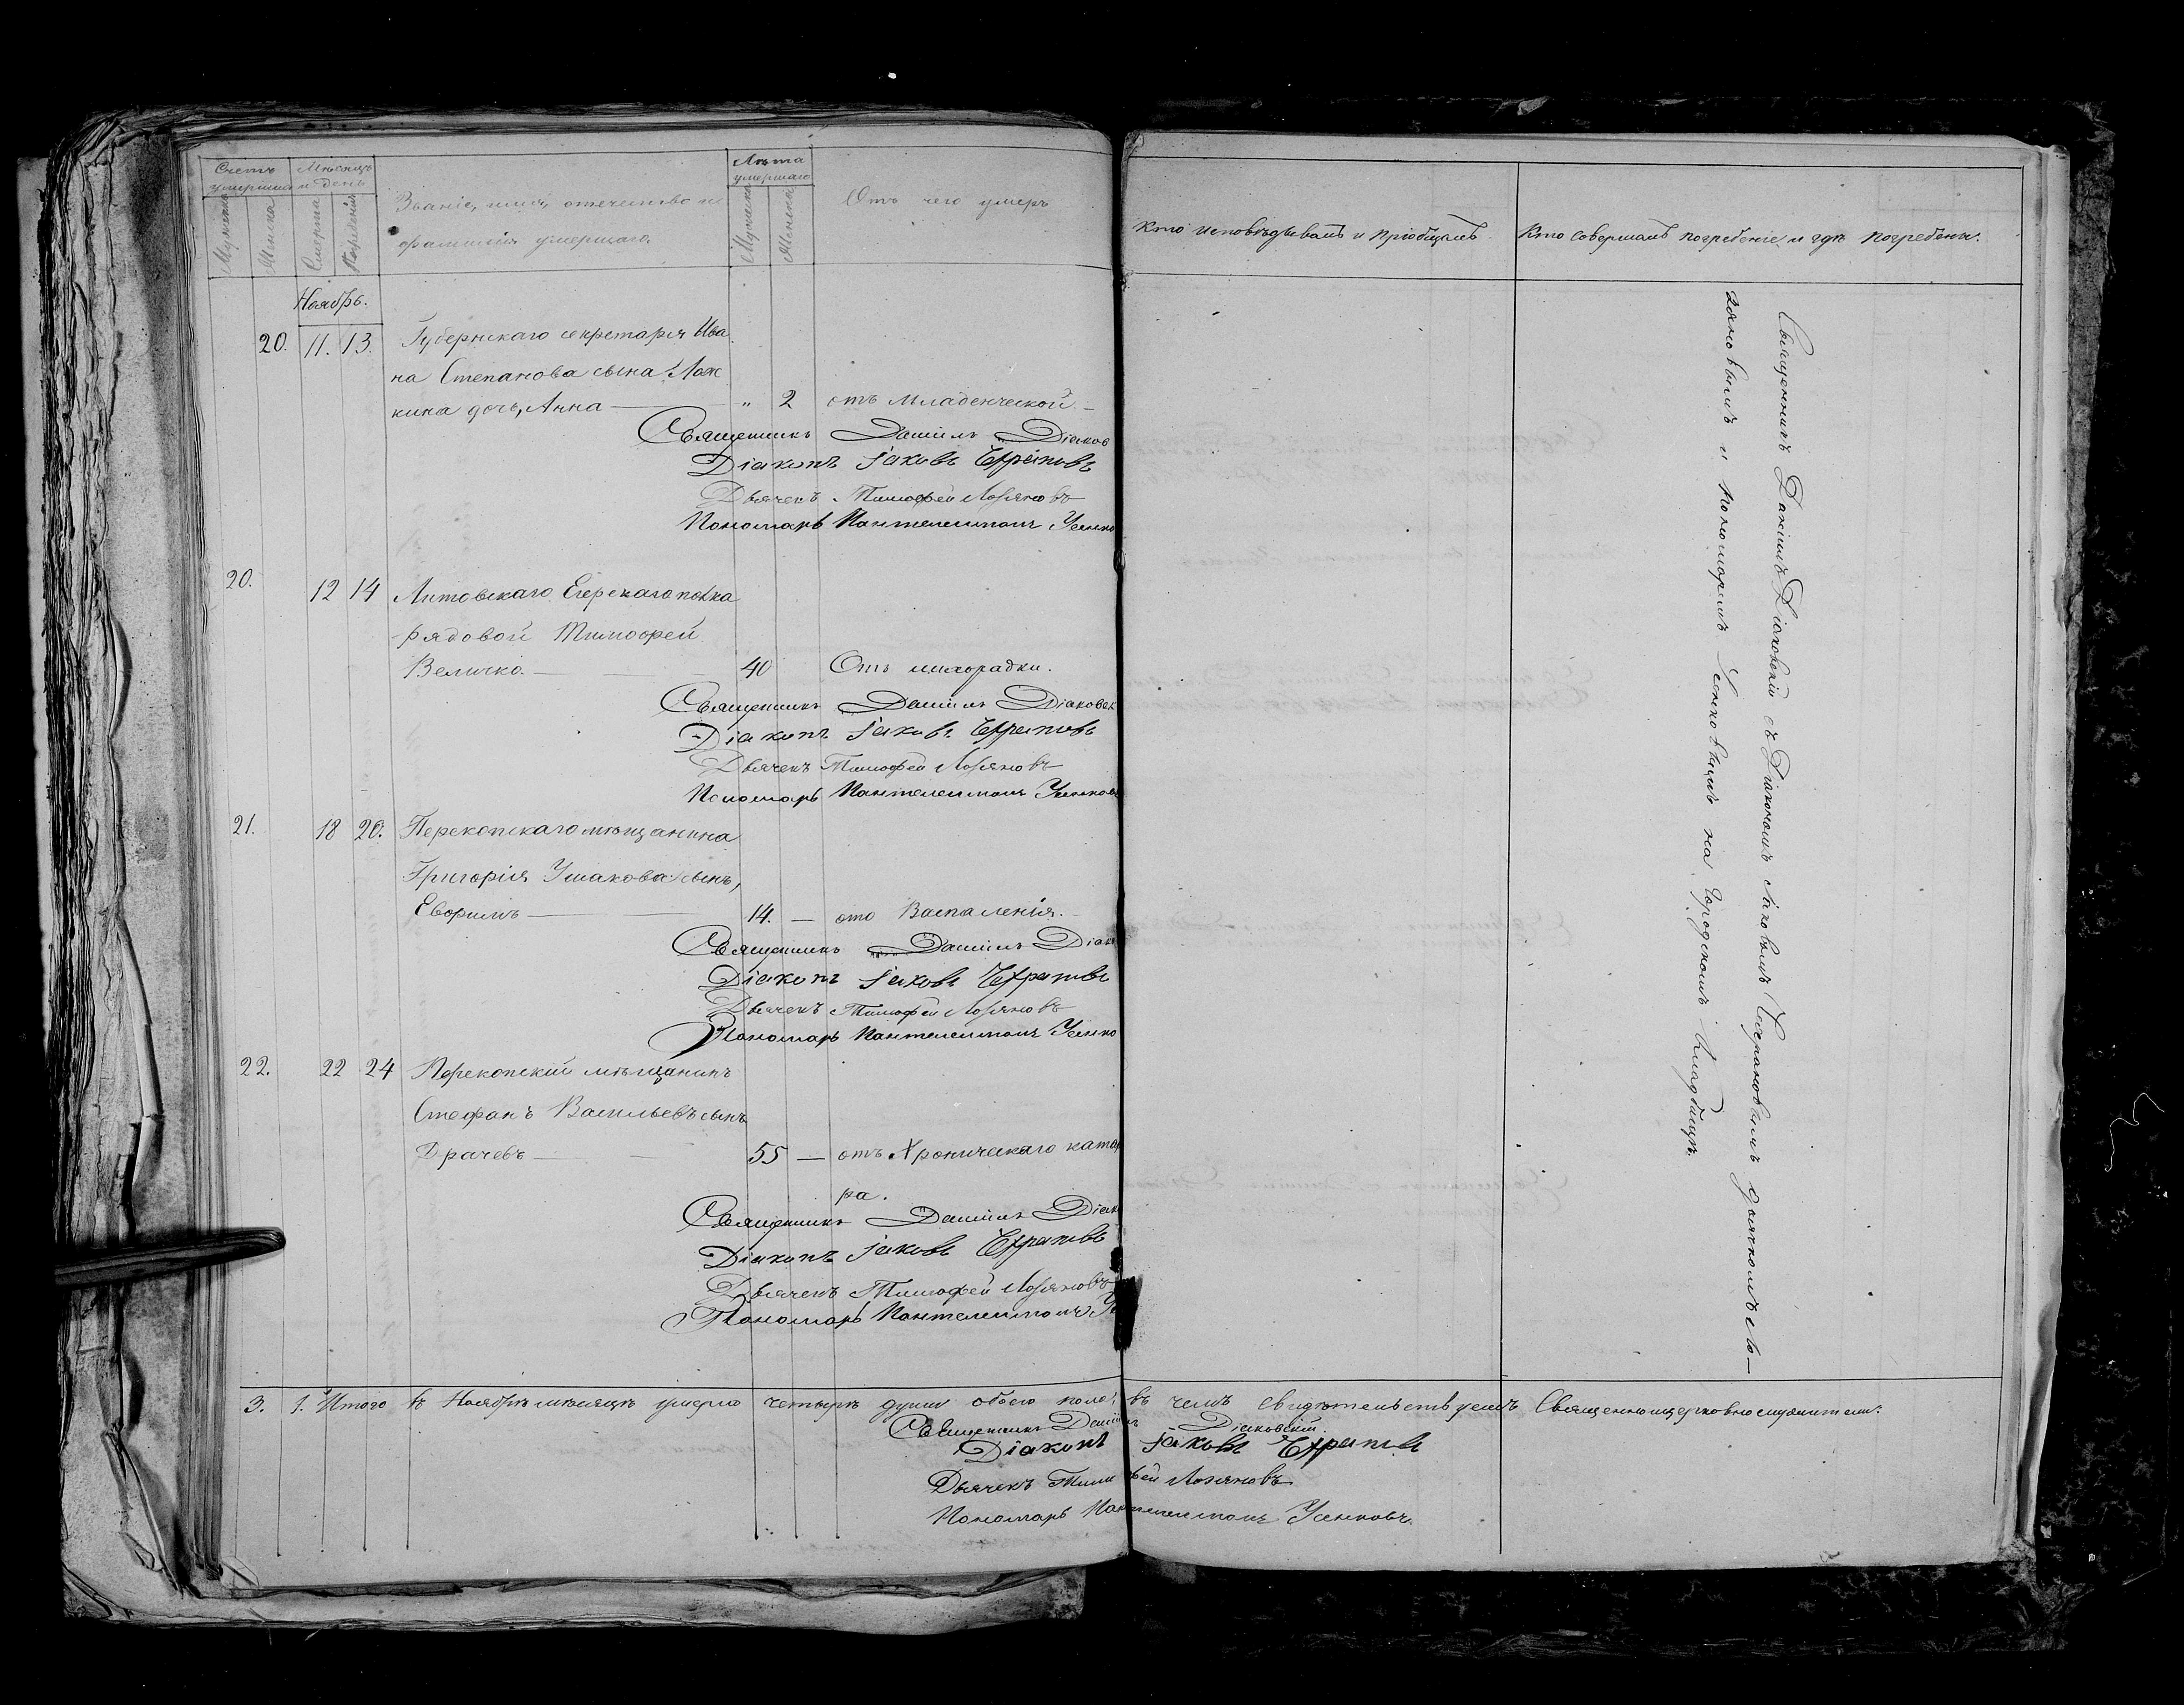 Счетъ умершихъ
Мѣсяцъ и день
Званіе, имя, отечество и
фамилія умершаго.
Лѣта
умершаго
Отъ чего умеръ
Кто исповѣдывалъ и пріобщалъ.
Кто совершалъ погребеніе и гдѣ погребены.
Мужеска
Женска
Смерти
Погребенія
Мужеска
Женска
Ноябрь.
20. 11. 13. Губернскаго секретаря Ива
на Степанова сына Лож
кина дочь, Анна — " 2 отъ младенческой —
Священникъ Даніилъ Діаков
Діаконъ Іаковъ
Дьячекъ Тимофей Лозяновъ
Пономарь Пантелеимонъ Усенко
20. 12 14 Литовскаго Егерскаго полка
рядовой Тимофей
Величко. — 40 Отъ лихорадки.
Священникъ Даніилъ Діаковск
Діаконъ Іаковъ
Дьячекъ Тимофей Лозяновъ
Пономарь Пантелеимонъ Усенков
21. 18 20. Перекопскаго мѣщанина
Григорія Ушакова сынъ,
Ефримъ — 14. — ото Воспаленія.
Священникъ Даніилъ Діак
Діаконъ Іаковъ
Дьячекъ Тимофей Лозяновъ
Пономарь Пантелеимонъ Усенко
22. 22 24 Перекопскій мѣщанинъ
Стефанъ Васильевъ сынъ
Драчевъ — 55 — отъ Хроническаго катар
ра.
Священникъ Даніилъ Діак
Діаконъ Іаковъ
Дьячекъ Тимофей Лозяновъ
Пономарь Пантелеимонъ Ус
Священникъ Даніилъ Діаковскій съ Діакономъ Іаковымъ дьячкомъ Ло—
зяновымъ и пономаремъ Усенковымъ на Городскомъ кладбищѣ.
3. 1. Итого въ Ноябрѣ мѣсяцѣ умерло четыре души обоего пола, въ чемъ свидѣтельствуемъ Священноцерковнослужители:
Священникъ Даніилъ Діаковскій.
Діаконъ Іаковъ
Дьячекъ Тимофей Лозяновъ
Пономарь Пантелеимонъ Усенковъ.